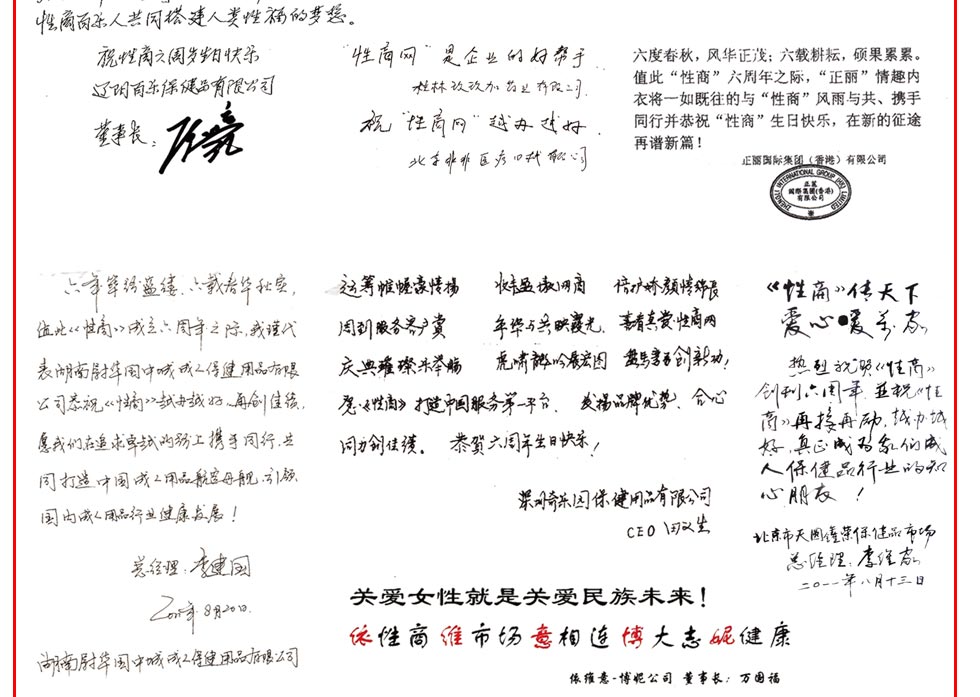 性商百乐人共同搭建人类性福的梦想。
祝性商六周岁生日快乐
辽阳百乐保健品有限公司
董事长：
“性商网”是企业的好帮手
桂林玫玫加药业有限公司
祝“性商网”越办越好
北京非非医疗口栈有限公司
六度春秋，风华正茂；六载耕耘，硕果累累。
值此“性商”六周年之际，“正丽”情趣内
衣将一如既往的与“性商”风雨与共、携手
同行并恭祝“性商”生日快乐，在新的征途
再谱新篇！
正丽国际集团（香港）有限公司
ZHENGLI INTERNATIONAL GROUP (HK) LIMITED
正麗
國際集團(香港)
有限公司
六年筚路蓝缕，六载春华秋实，
值此《性商》成立六周年之际，我谨代
表湖南尉华国中城成人保健用品有限
公司恭祝《性商》越办越好、再创佳绩，
愿我们在追求卓越的路上携手同行，共
同打造中国成人用品航空母舰，引领
国内成人用品行业健康发展！
总经理：李建国
8月20日
湖南尉华国中城成人保健用品有限公司
运筹帷幄豪情扬
周到服务客户赏 年华与共映霞光
庆典璀璨乐举觞 虎啸龙吟展宏图
愿《性商》打造中国服务第一平台、发扬品牌优势、合心
同力创佳绩。恭贺六周年生日快乐！
深圳奇乐园保健用品有限公司
CEO
《性商》传天下
爱心暖万家
热烈祝贺《性商》
创刊六周年，并祝《性
商》再接再励，越办越
好，真正成为我们成
人保健品行业的知
心朋友！
北京市天圆隆荣保健品市场
总经理：李维家
二〇一一年八月十三日
关爱女性就是关爱民族未来！
依性商维市场意相连博大志妮健康
依维意-博妮公司 董事长：万国福